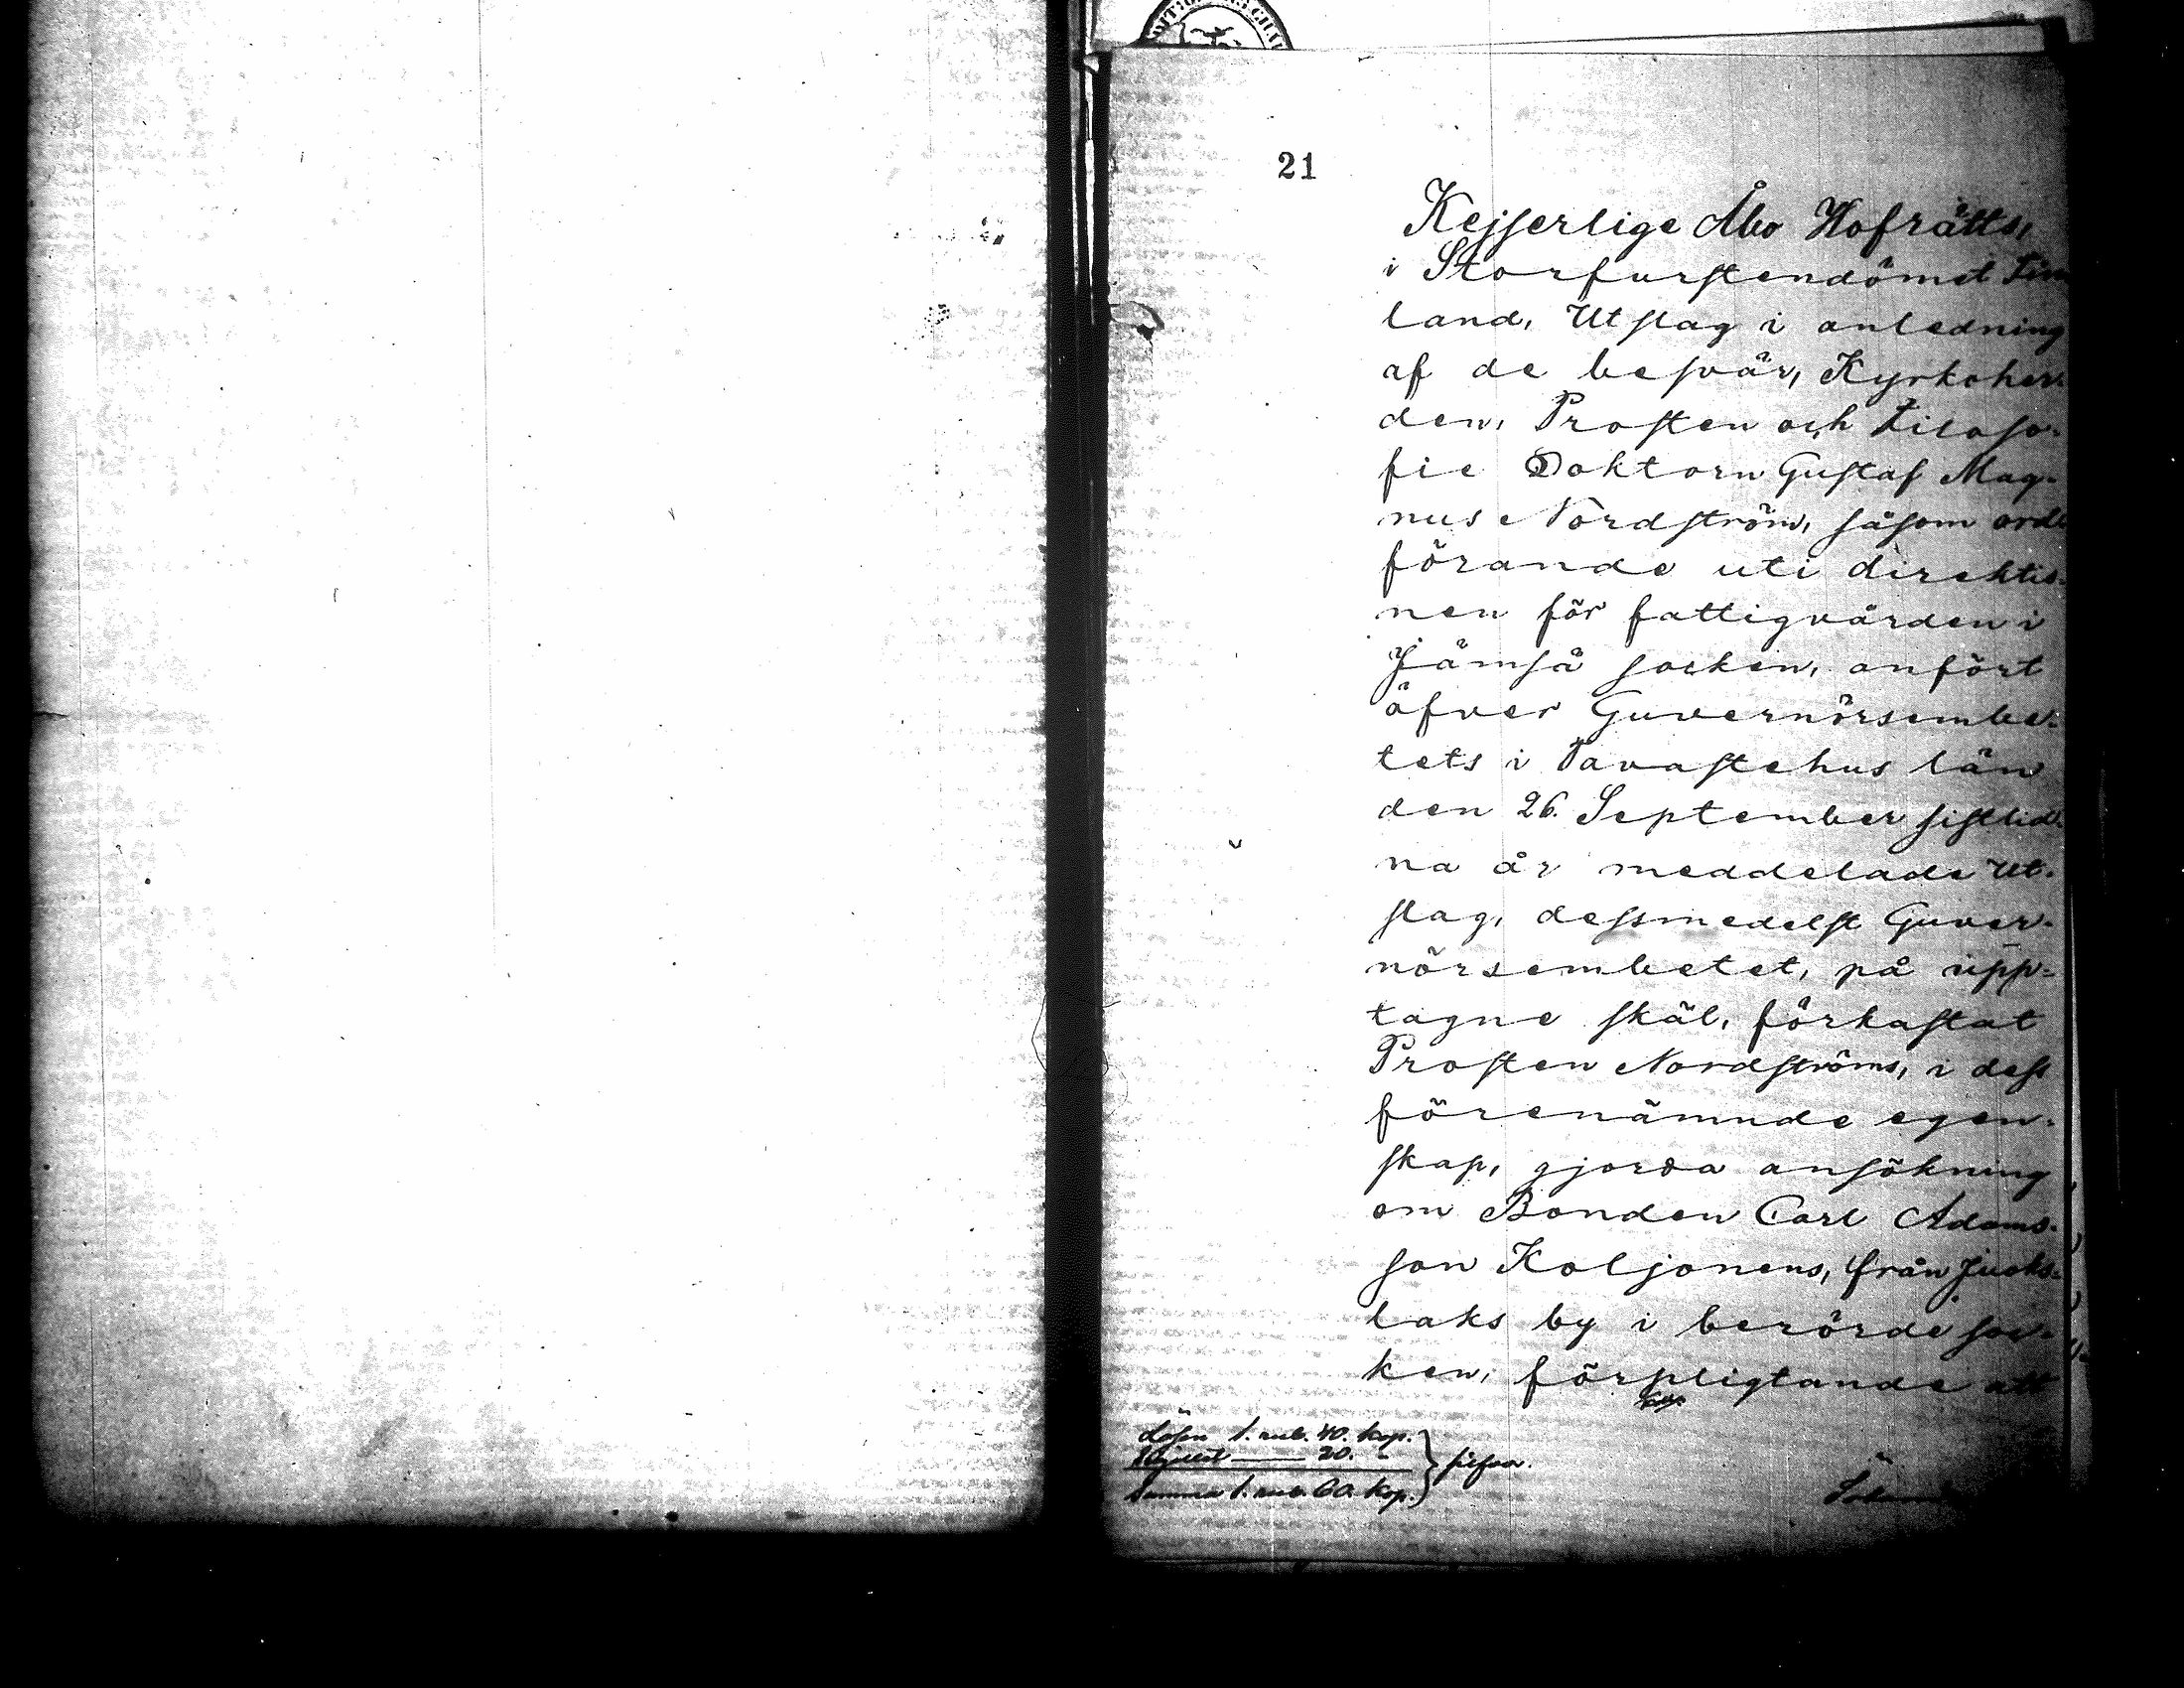 21
Kejserlige Åbo Hofrätts,
i Storfurstendömet Fin
land, Utslag i anledning
af de besvär, Kyrkoher¬
den, Prosten och Filoso¬
fie Doktorn Gustaf Mag¬
nus Nordström, såsom ord
förande uti direktio¬
nen för fattigvården i
Jämsä socken, anfört
öfver Guvernörsembe¬
tets i Tavastehus län
den 26. September sistlid¬
na år meddelade Ut¬
slag, dessmedelst Guver¬
nörsembetet, på upp¬
tagne skäl, förkastat
Prosten Nordströms, i dess
förenämnde egen¬
skap, gjorda ansökning
om Bonden Carl Adams¬
son Koljonens, från Juoks¬
laks by i berörde soc¬
ken, förpligtande att
Lösen 1. rub. 40. kop.
20. -
Summa 1. rub. 60. kop. } silfver.